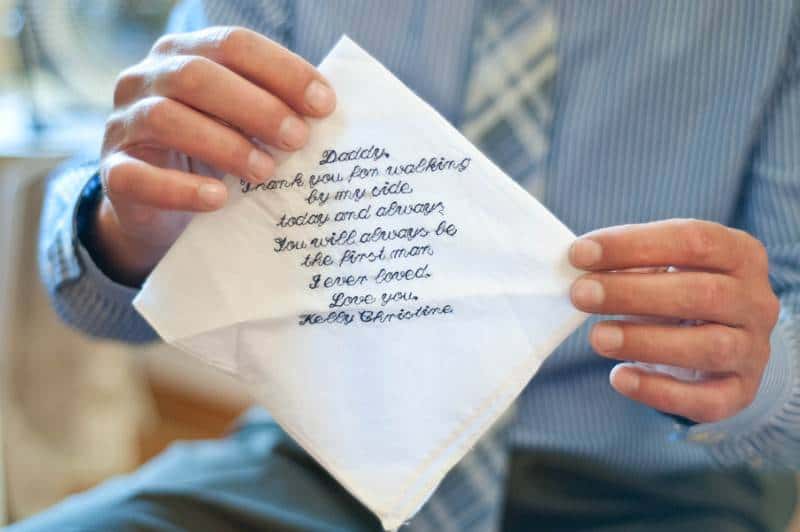 Daddy,
Thank you for walking
by my side
today and always.
You will always be
the first man
I ever loved.
Love you,
Kelly Christine